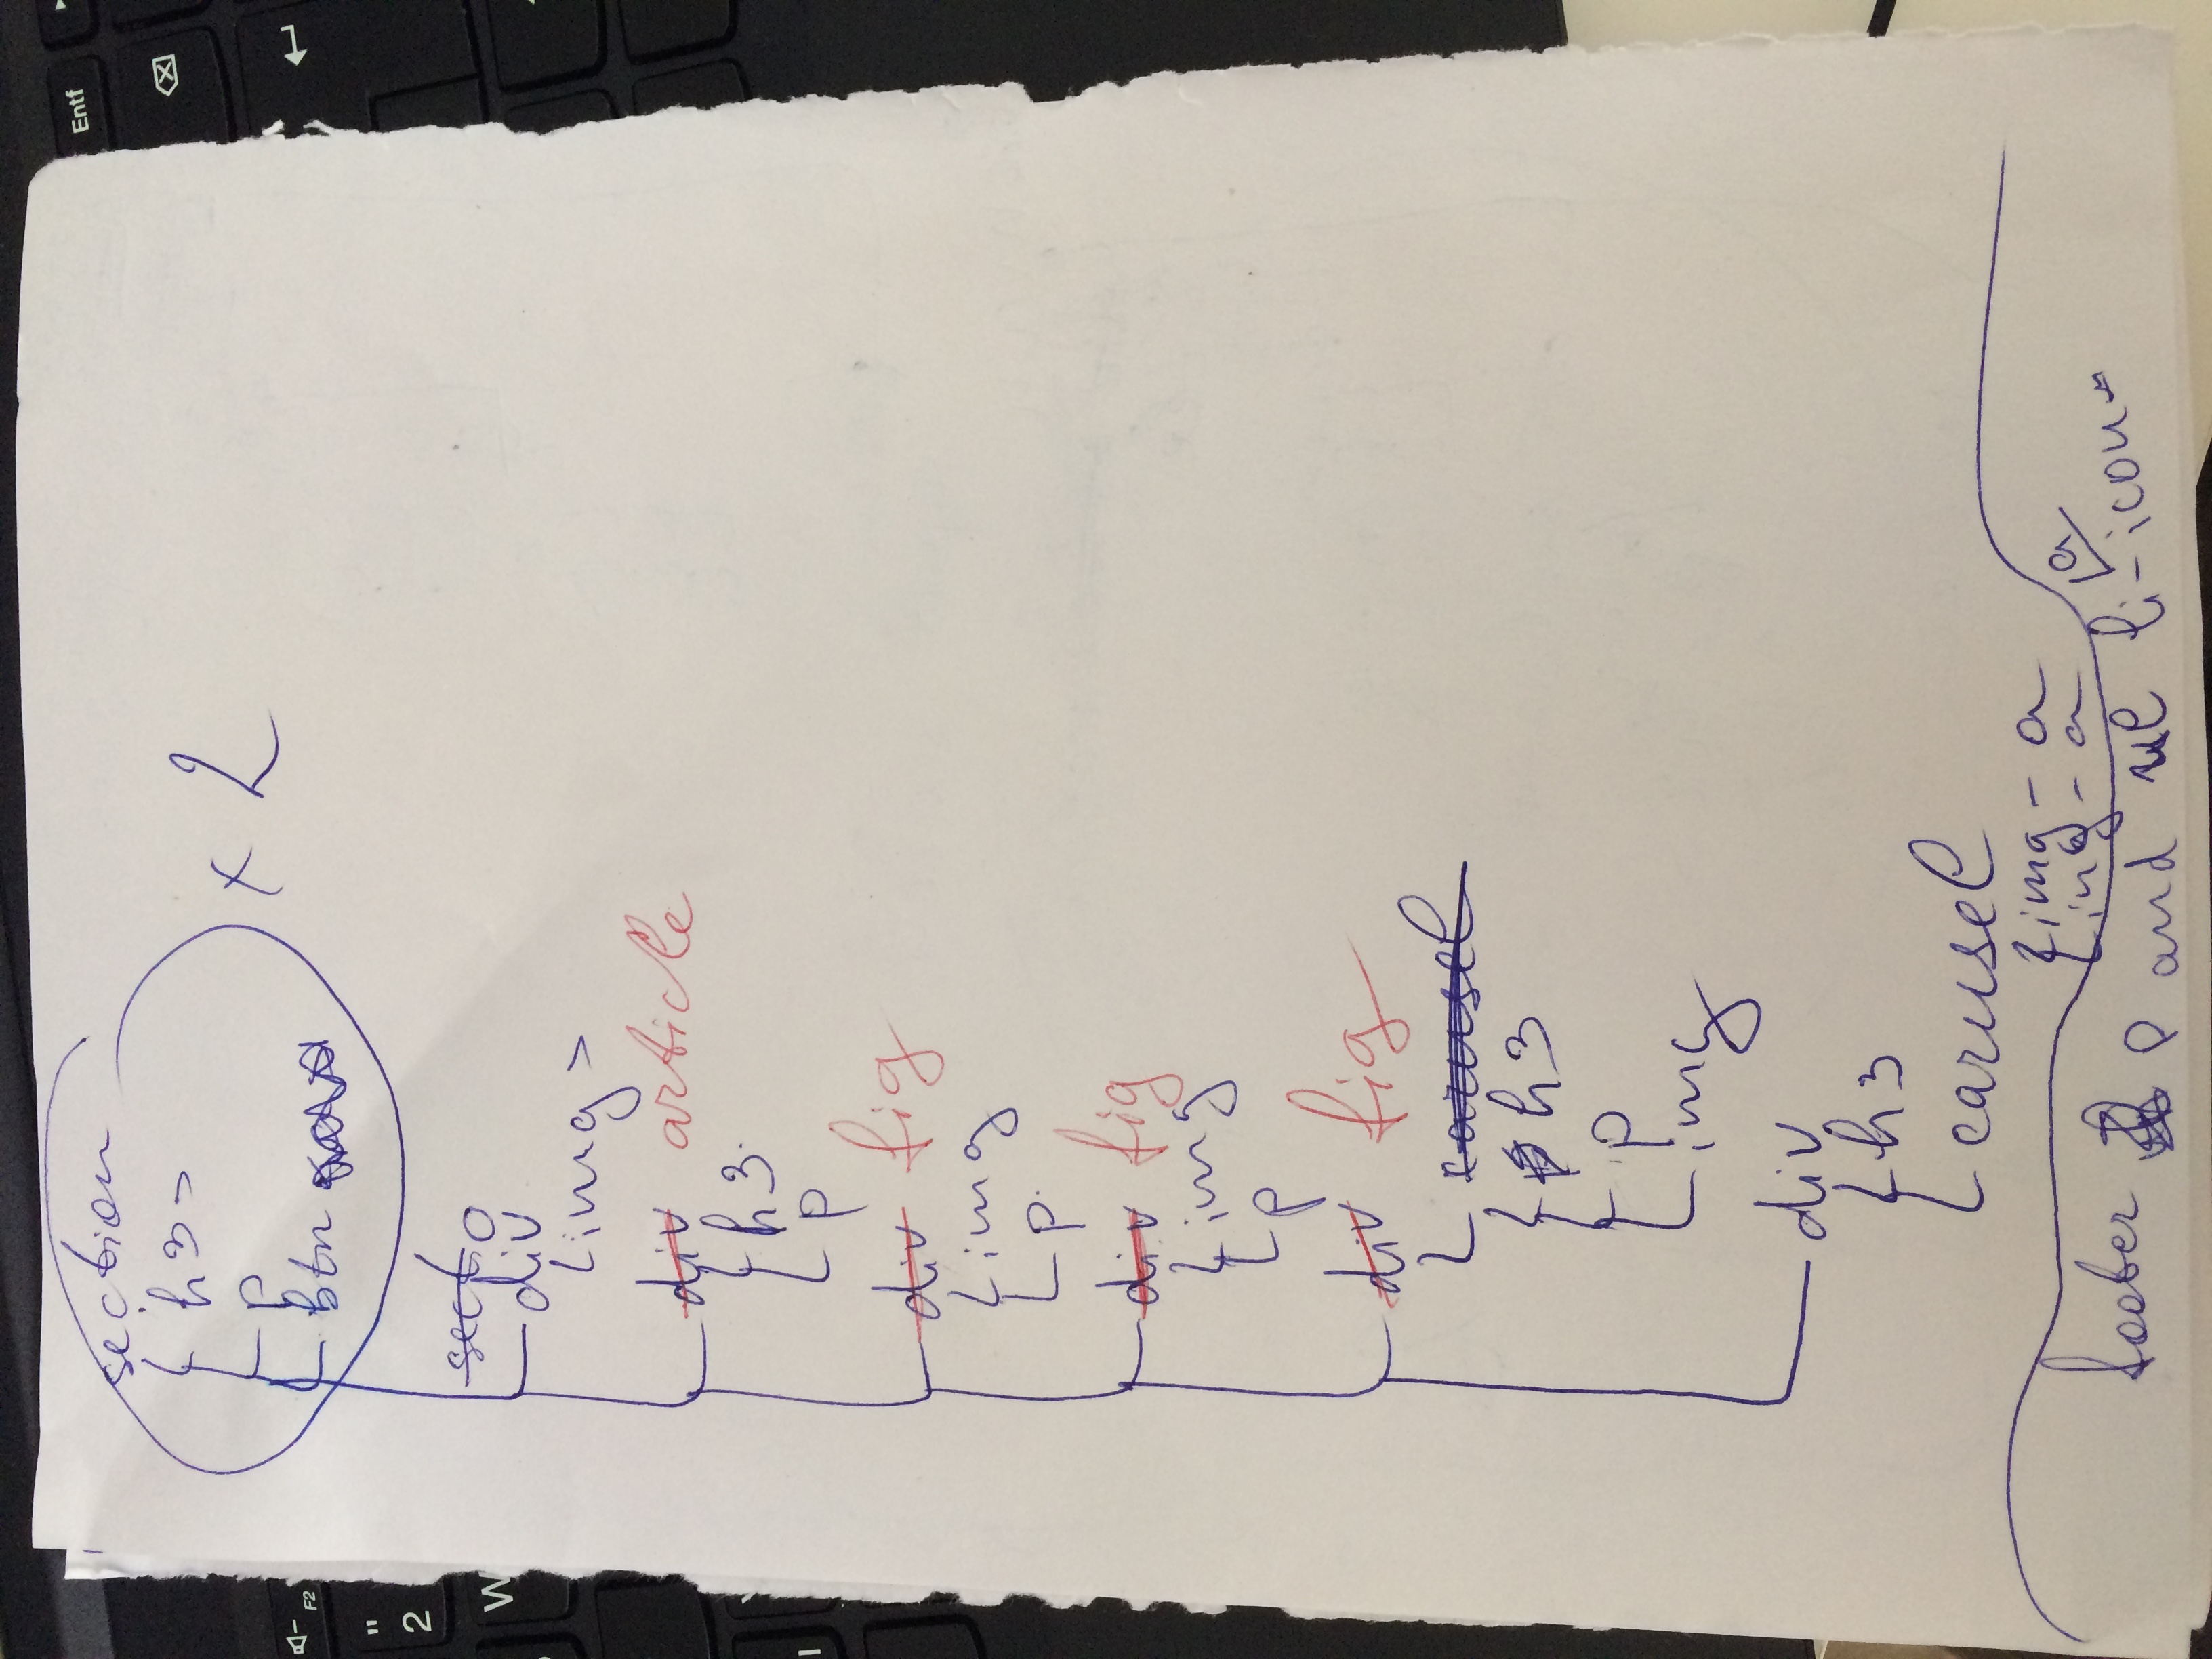 section
h3>
p
x 2
btn
secto
div
img>
div article
h3
p
div fig
img
p
div fig
img
p
div fig
carusel
h3
p
img
div
h3
carusel
img - a
img - a
a
footer p and ul li-icon-
Entf
F2
"
2
W